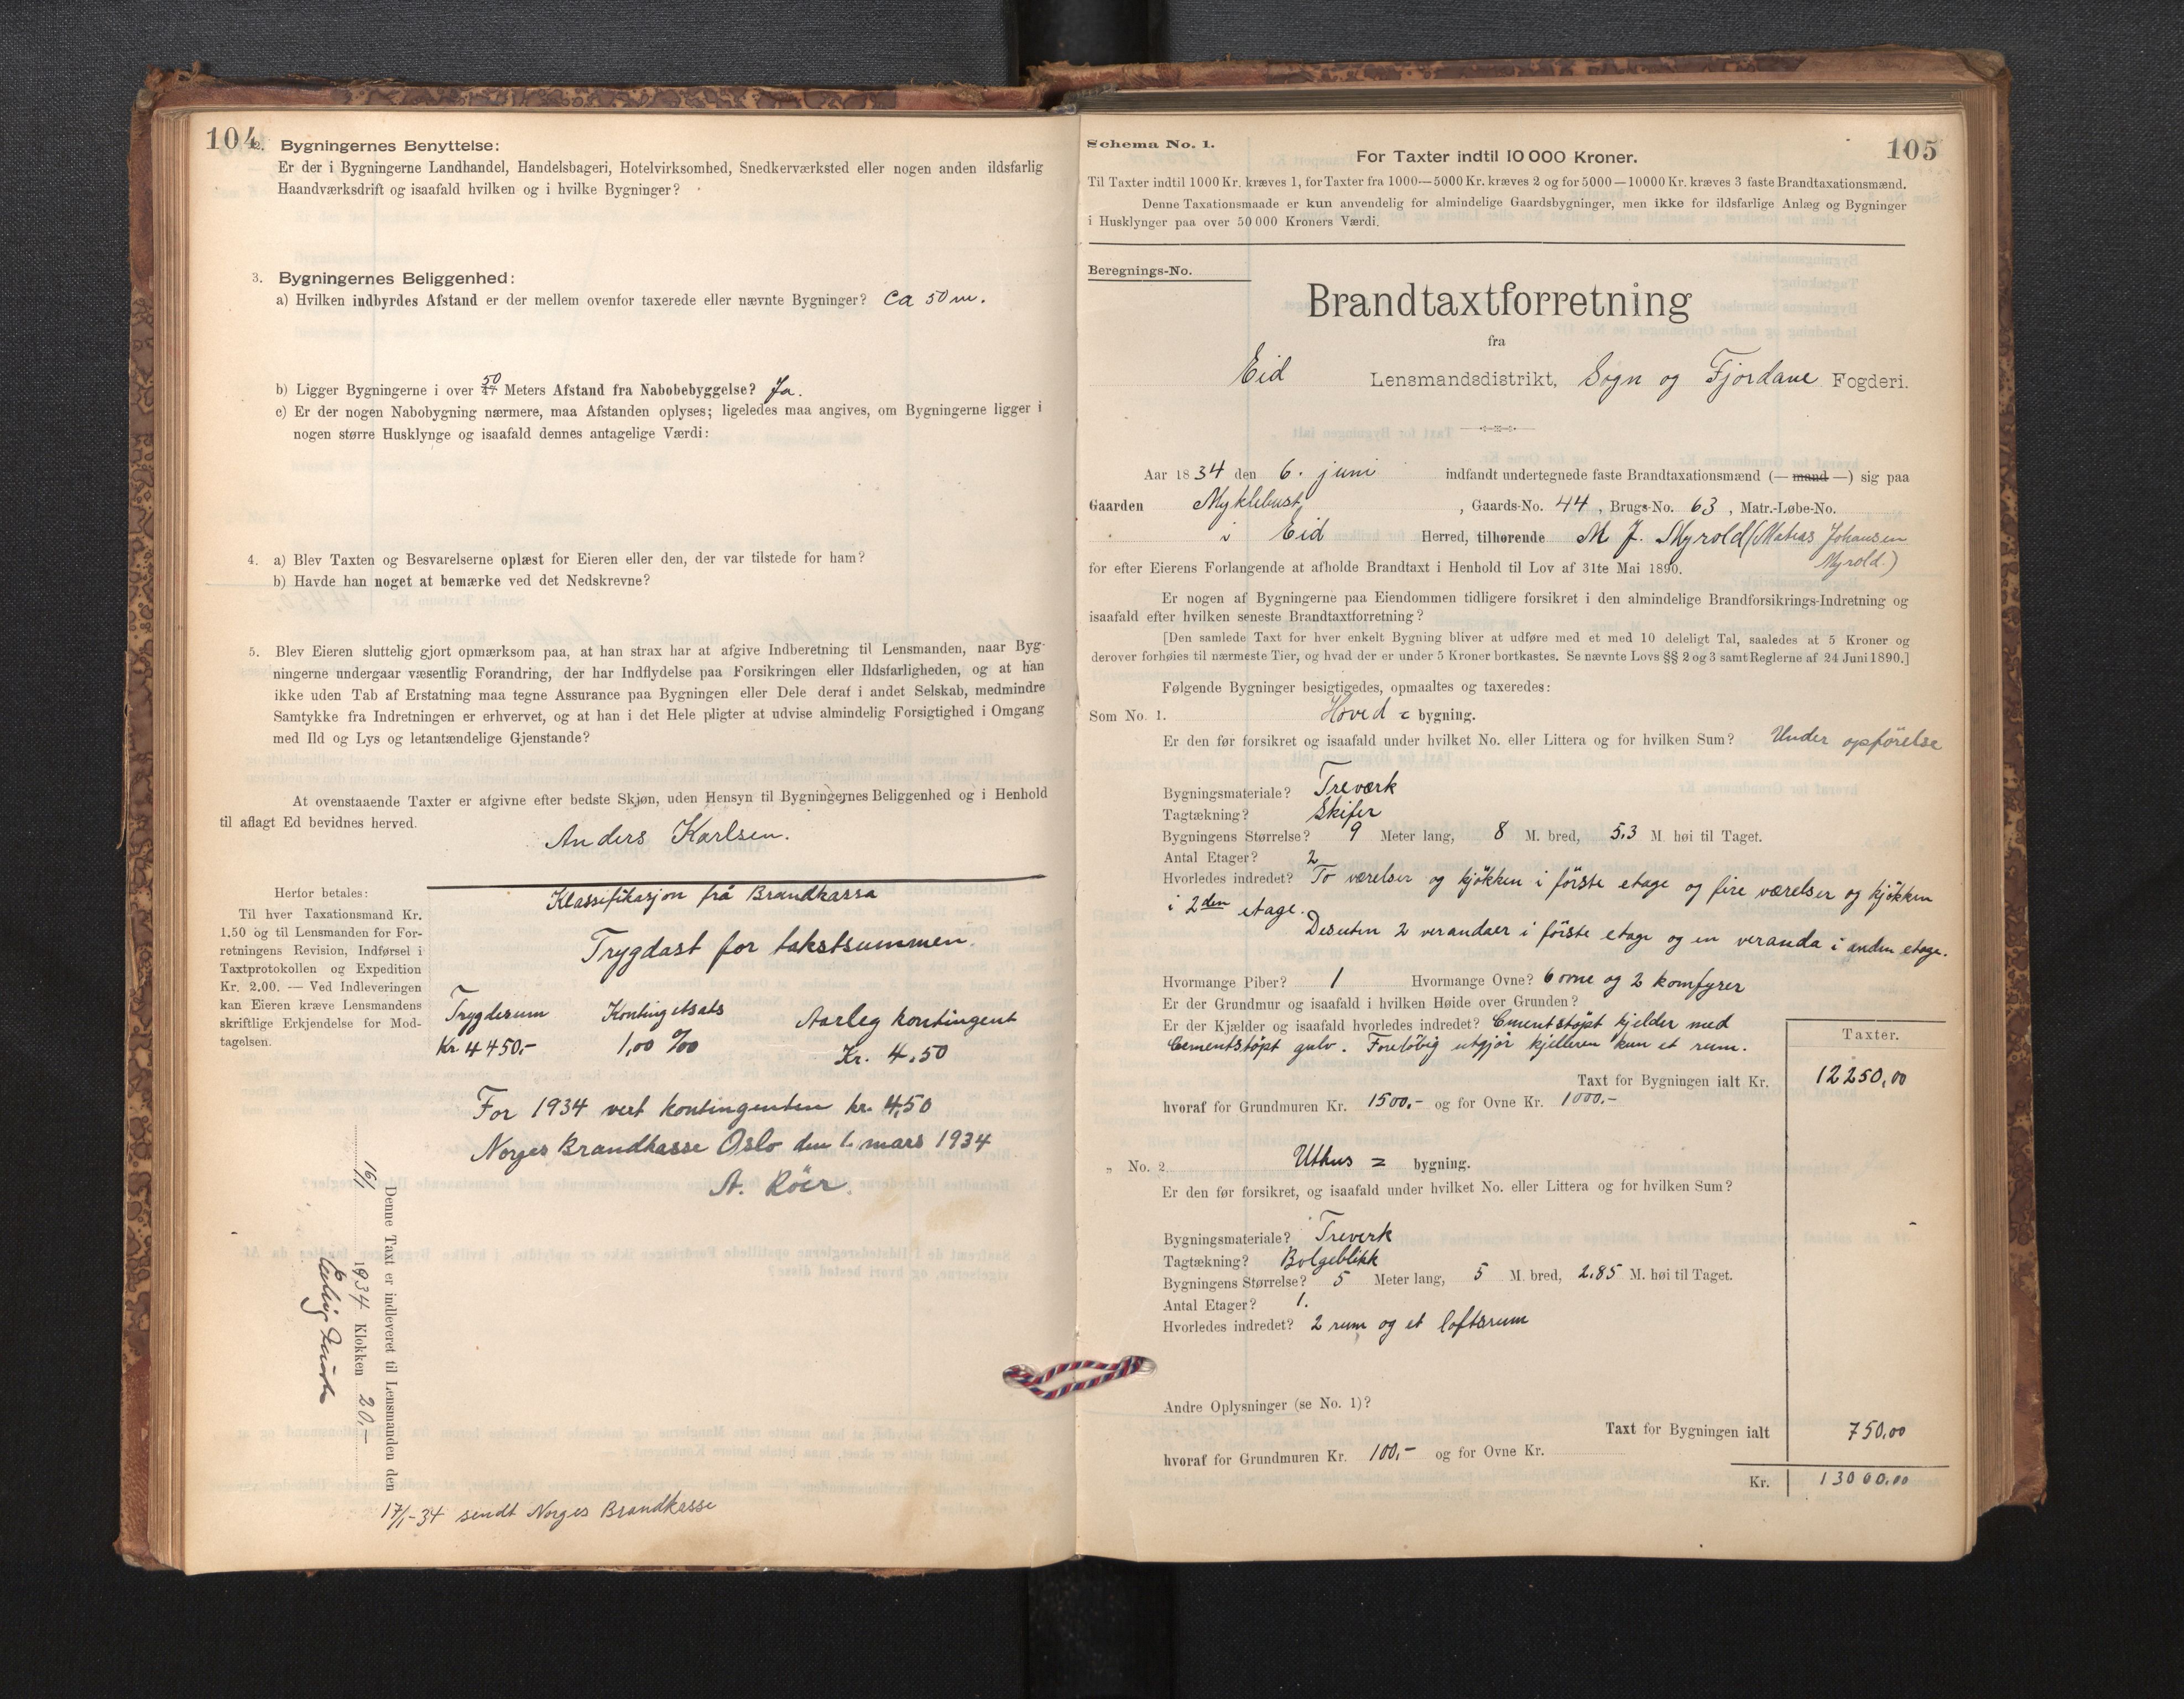 104
2. Bygningernes Benyttelse:
Er der i Bygningerne Landhandel, Handelsbageri, Hotelvirksomhed, Snedkerværksted eller nogen anden ildsfarlig
Haandværksdrift og isaafald hvilken og i hvilke Bygninger?
3. Bygningernes Beliggenhed:
a) Hvilken indbyrdes Afstand er der mellem ovenfor taxerede eller nævnte Bygninger? Ca 50 m.
50
b) Ligger Bygningerne i over 47 Meters Afstand fra Nabobebyggelse? Ja.
c) Er der nogen Nabobygning nærmere, maa Afstanden oplyses; ligeledes maa angives, om Bygningerne ligger i
nogen større Husklynge og isaafald dennes antagelige Værdi:
4. a) Blev Taxten og Besvarelserne oplæst for Eieren eller den, der var tilstede for ham?
b) Havde han noget at bemærke ved det Nedskrevne?
5. Blev Eieren sluttelig gjort opmærksom paa, at han strax har at afgive Indberetning til Lensmanden, naar Byg-
ningerne undergaar væsentlig Forandring, der har Indflydelse paa Forsikringen eller Ildsfarligheden, og at han
ikke uden Tab af Erstatning maa tegne Assurance paa Bygningen eller Dele deraf i andet Selskab, medmindre
Samtykke fra Indretningen er erhvervet, og at han i det Hele pligter at udvise almindelig Forsigtighed i Omgang
med Ild og Lys og letantændelige Gjenstande?
At ovenstaaende Taxter er afgivne efter bedste Skjøn, uden Hensyn til Bygningernes Beliggenhed og i Henhold
til aflagt Ed bevidnes herved.
Anders Karlsen.
Herfor betales:
Til hver Taxationsmand Kr.
1.50 og til Lensmanden for For-
retningens Revision, Indførsel i
Taxtprotokollen og Expedition
Kr. 2.00. — Ved Indleveringen
kan Eieren kræve Lensmandens
skriftlige Erkjendelse for Mod-
tagelsen.
Klassifikasjon frå Brandkassa
Trygdast for takstsummen.
Trygdesum Kontingetsats Aarleg kontingent
Kr. 4450,- 1,00 ‰ Kr. 4.50
For 1934 vert kontingenten kr. 4,50
Norges Brandkasse Oslo den 1. mars 1934
A. Röer.
Denne Taxt er indleveret til Lensmanden den
16/1 1934 Klokken 20,—
17/1-34 sendt Norges Brandkasse
105
Schema No. 1.
For Taxter indtil 10 000 Kroner.
Til Taxter indtil 1000 Kr. kræves 1, for Taxter fra 1000—5000 Kr. kræves 2 og for 5000—10000 Kr. kræves 3 faste Brandtaxationsmænd.
Denne Taxationsmaade er kun anvendelig for almindelige Gaardsbygninger, men ikke for ildsfarlige Anlæg og Bygninger
i Husklynger paa over 50 000 Kroners Værdi.
Beregnings-No.
Brandtaxtforretning
fra
Eid Lensmandsdistrikt, Sogn og Fjordane Fogderi.
Aar 1834 den 6. juni indfandt undertegnede faste Brandtaxationsmænd (— mand —) sig paa
Gaarden Myklebust, , Gaards-No. 44, Brugs-No. 63, Matr.-Løbe-No.
i Eid Herred, tilhørende M J. Myrold (Matias Johansen
Myrold.)
for efter Eierens Forlangende at afholde Brandtaxt i Henhold til Lov af 31te Mai 1890.
Er nogen af Bygningerne paa Eiendommen tidligere forsikret i den almindelige Brandforsikrings-Indretning og
isaafald efter hvilken seneste Brandtaxtforretning?
[Den samlede Taxt for hver enkelt Bygning bliver at udføre med et med 10 deleligt Tal, saaledes at 5 Kroner og
derover forhøies til nærmeste Tier, og hvad der er under 5 Kroner bortkastes. Se nævnte Lovs §§ 2 og 3 samt Reglerne af 24 Juni 1890.]
Følgende Bygninger besigtigedes, opmaaltes og taxeredes:
Som No. 1. Hoved = bygning.
Er den før forsikret og isaafald under hvilket No. eller Littera og for hvilken Sum? Under opförelse
Bygningsmateriale? Treværk
Tagtækning? Skifer
Bygningens Størrelse? 9 Meter lang, 8 M. bred, 5.3 M. høi til Taget.
Antal Etager? 2
Hvorledes indredet? To værelser og kjökken i förste etage og fire værelser og kjökken
i 2den etage.
Desuten 2 verandaer i förste etage og en veranda i anden etage.
Hvormange Piber? 1 Hvormange Ovne? 6 ovne og 2 komfyrer
Er der Grundmur og isaafald i hvilken Høide over Grunden?
Er der Kjælder og isaafald hvorledes indredet? Cementstöpt kjelder med
Cementstöpt gulv. Foreløbig utgjör kjelleren kun et rum.
Taxter.
Taxt for Bygningen ialt Kr. 12250,00
hvoraf for Grundmuren Kr. 1500,- og for Ovne Kr. 1000.-
„ No. 2. Uthus = bygning.
Er den før forsikret, og isaafald under hvilket No. eller Littera og for hvilken Sum?
Bygningsmateriale? Treverk
Tagtækning? Bolgeblikk
Bygningens Størrelse? 5 Meter lang, 5 M. bred, 2.85 M. høi til Taget.
Antal Etager? 1.
Hvorledes indredet? 2 rum og et loftsrum
Andre Oplysninger (se No. 1)?
Taxt for Bygningen ialt 750,00
hvoraf for Grundmuren Kr. 100,- og for Ovne Kr.
Kr. 13000,00